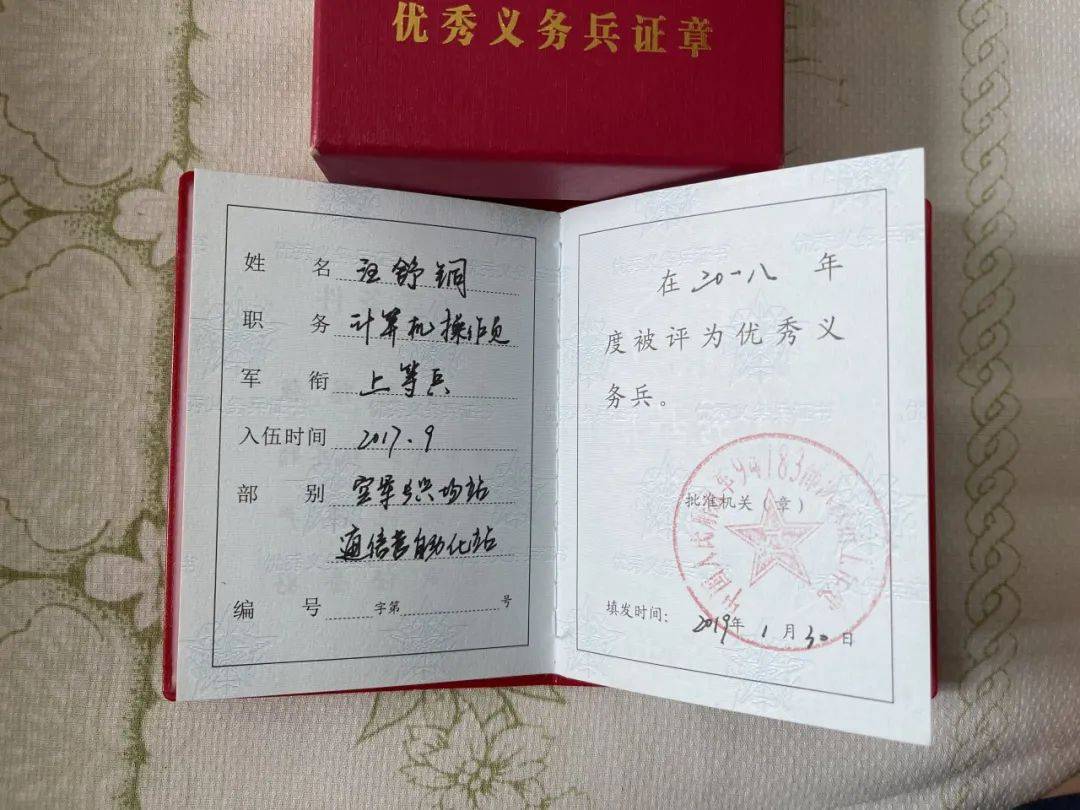 优秀义务兵证章
姓 名 汪舒铜
职 务 计算机操作员
军 衔 上等兵
入伍时间 2017.9
部 别 空军长兴场站
通信营自动化站
编 号 字第 号
在二〇一八年
度被评为优秀义
务兵。
批准机关（章）
填发时间： 2019年 1月30日